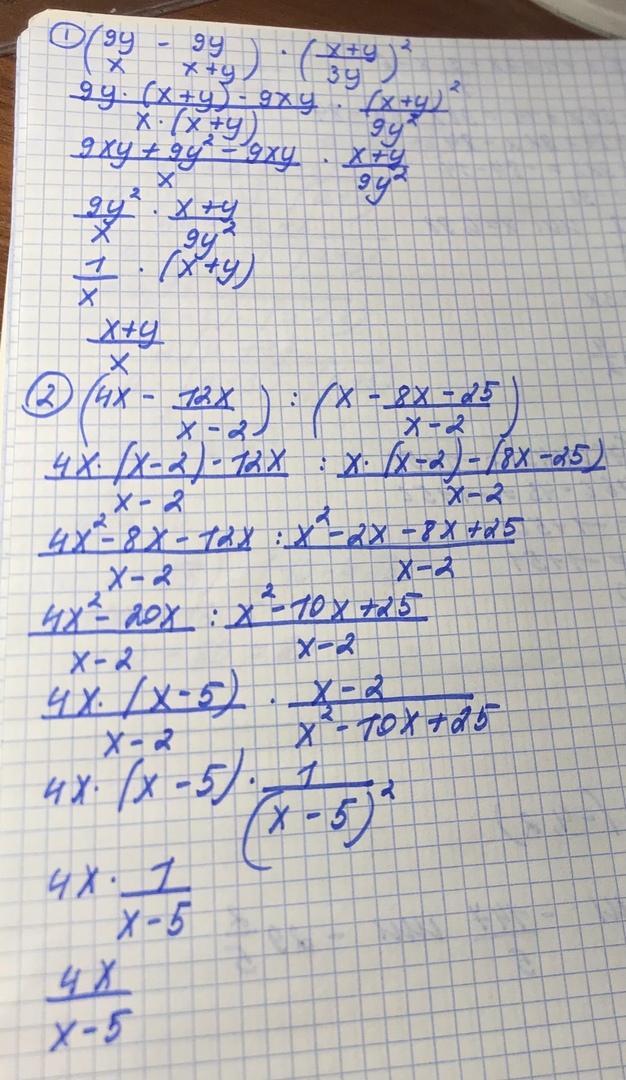 ① (9y/x - 9y/x+y) · (x+y/3y)²
9y·(x+y)-9xy/x·(x+y) · (x+y)²/9y²
9xy+9y²-9xy/x · x+y/9y²
9y²/x · x+y/9y²
1/x · (x+y)
x+y/x
② (4x - 12x/x-2) : (x - 8x-25/x-2)
4x·(x-2)-12x/x-2 : x·(x-2)-(8x-25)/x-2
4x²-8x-12x/x-2 : x²-2x-8x+25/x-2
4x²-20x/x-2 : x²-10x+25/x-2
4x·(x-5)/x-2 · x-2/x²-10x+25
4x·(x-5)·1/(x-5)²
4x·1/x-5
4x/x-5